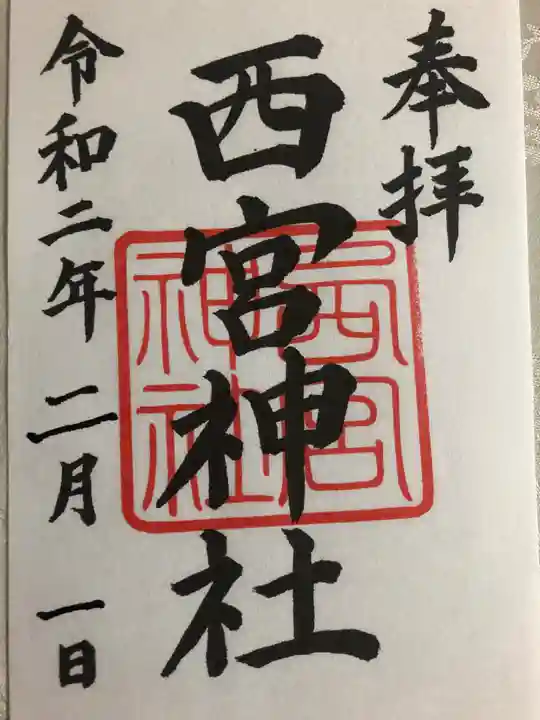 奉拝
西宮神社
西宮
神社
令和二年二月一日